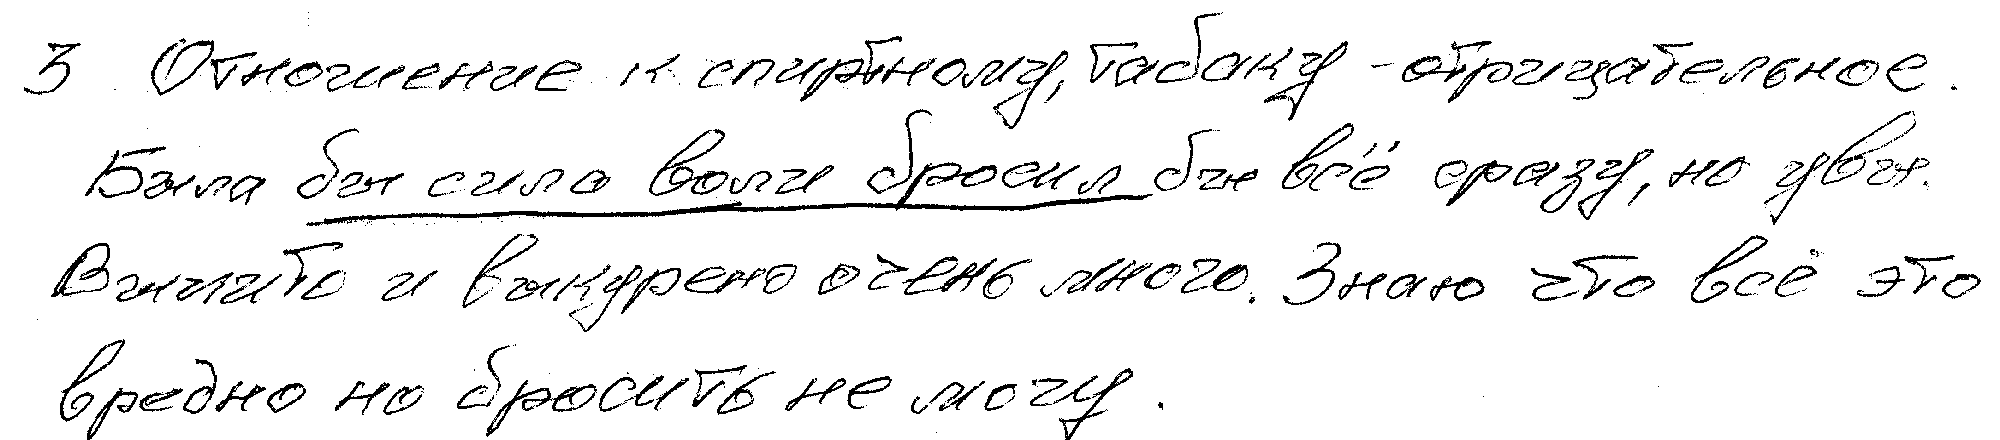 3 Отношение к спиртному, табаку - отрицательное.
Была бы сила воли бросил бы всё сразу, но увы.
Выпито и выкурено очень много. Знаю что всё это
вредно но бросить не могу.